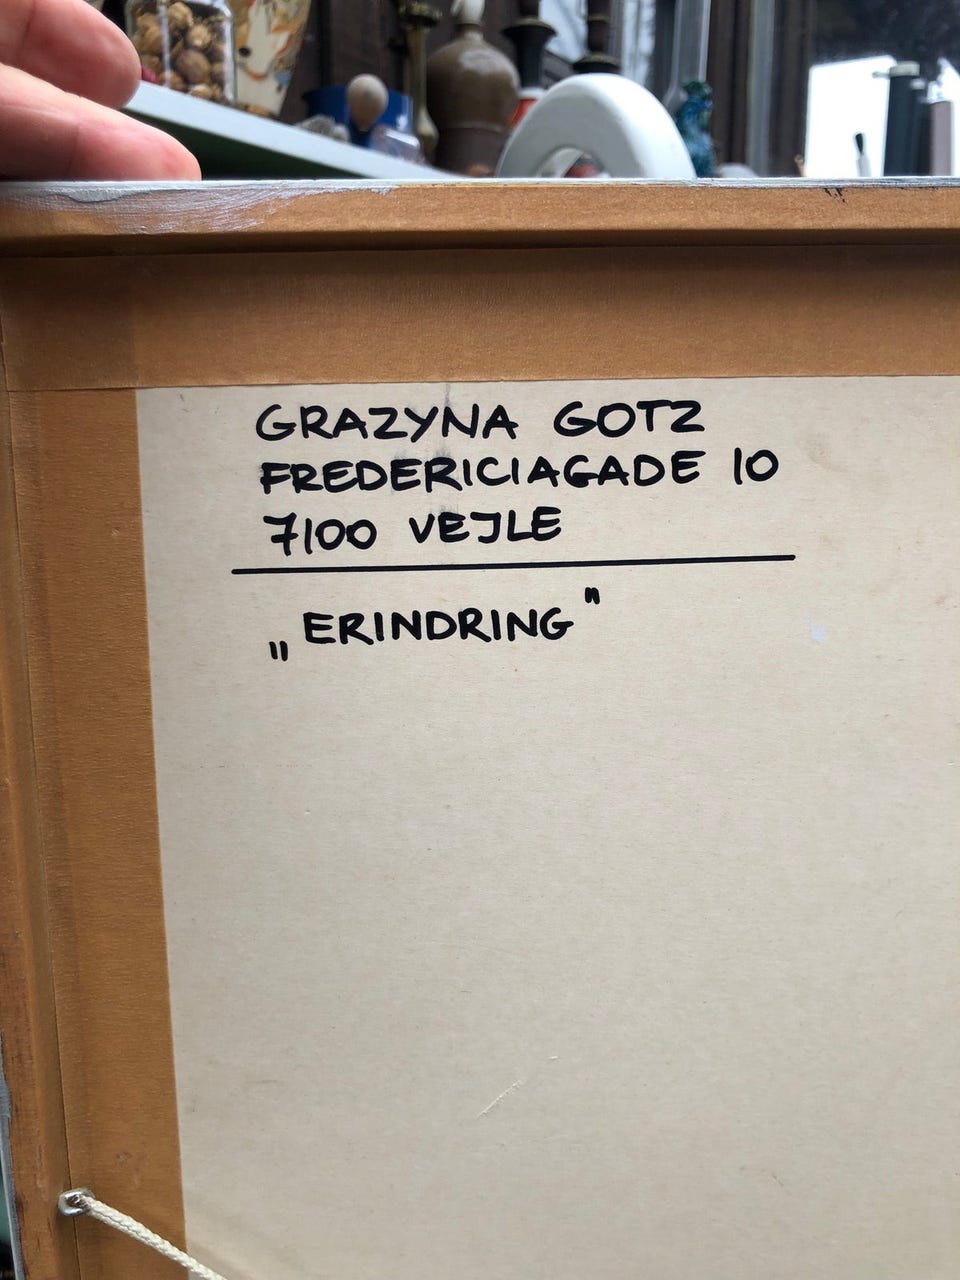 GRAZYNA GOTZ
FREDERICIAGADE 10
7100 VEJLE
„ERINDRING"